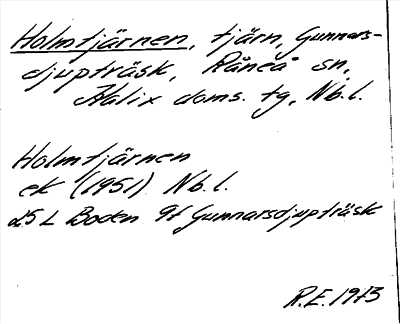 Holmtjärnen, tjärn, Gunnars-
djupträsk, Råneå sn,
Kalix doms. tg, Nb.l.
Holmtjärnen
ek (1951) Nb.l.
25 L Boden 9f Gunnarsdjupträsk
R.E. 1973